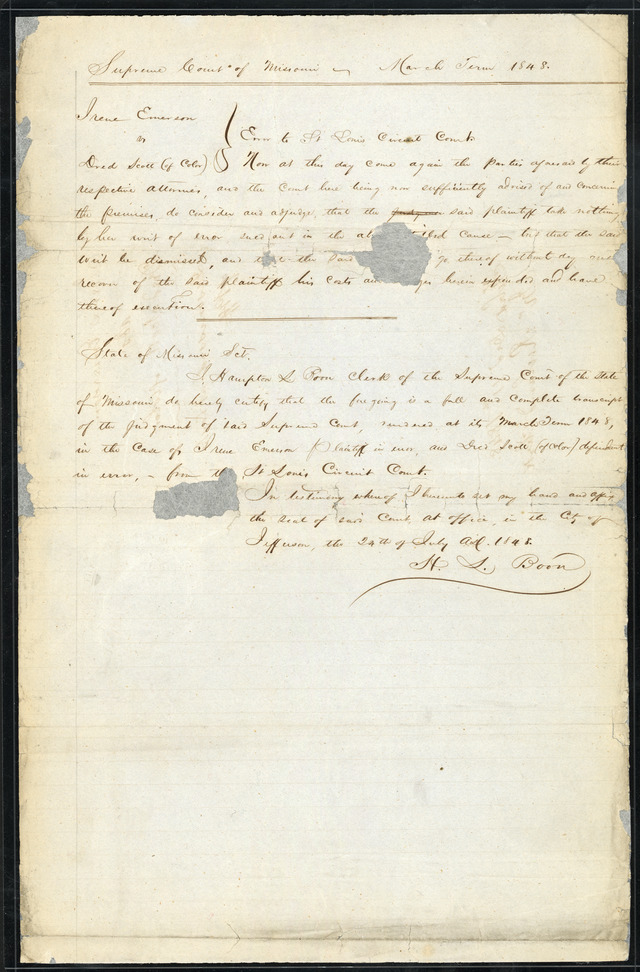 Supreme Court of Missouri March Term 1848.
Irene Emerson
vs Error to St Louis Circuit Court.
Dred Scott (of Color) Now at this day come again the Parties aforesaid by their
respective attornies, and the Court here being now sufficiently advised of and concerning
the premises, do consider and adjudge, that the said plaintiff take nothing
by her writ of error sued out in the cause — but that the said
writ be dismissed, and the said go thereof without day and
recover of the said plaintiff his costs and herein expended and have
thereof execution.
State of Missouri Sct.
I, Hampton L Boon Clerk of the Supreme Court of the State
of Missouri do hereby certify that the foregoing is a full and complete transcript
of the Judgment of said Supreme Court, rendered at its March Term 1848,
in the Case of Irene Emerson Plaintiff in error, and Dred Scott (of Color) defendant
in error, - from the St Louis Circuit Court.
In testimony whereof I hereunto set my hand and affix
the seal of said Court, at office, in the City of
Jefferson, the 24th of July A.D. 1848.
H. L. Boon